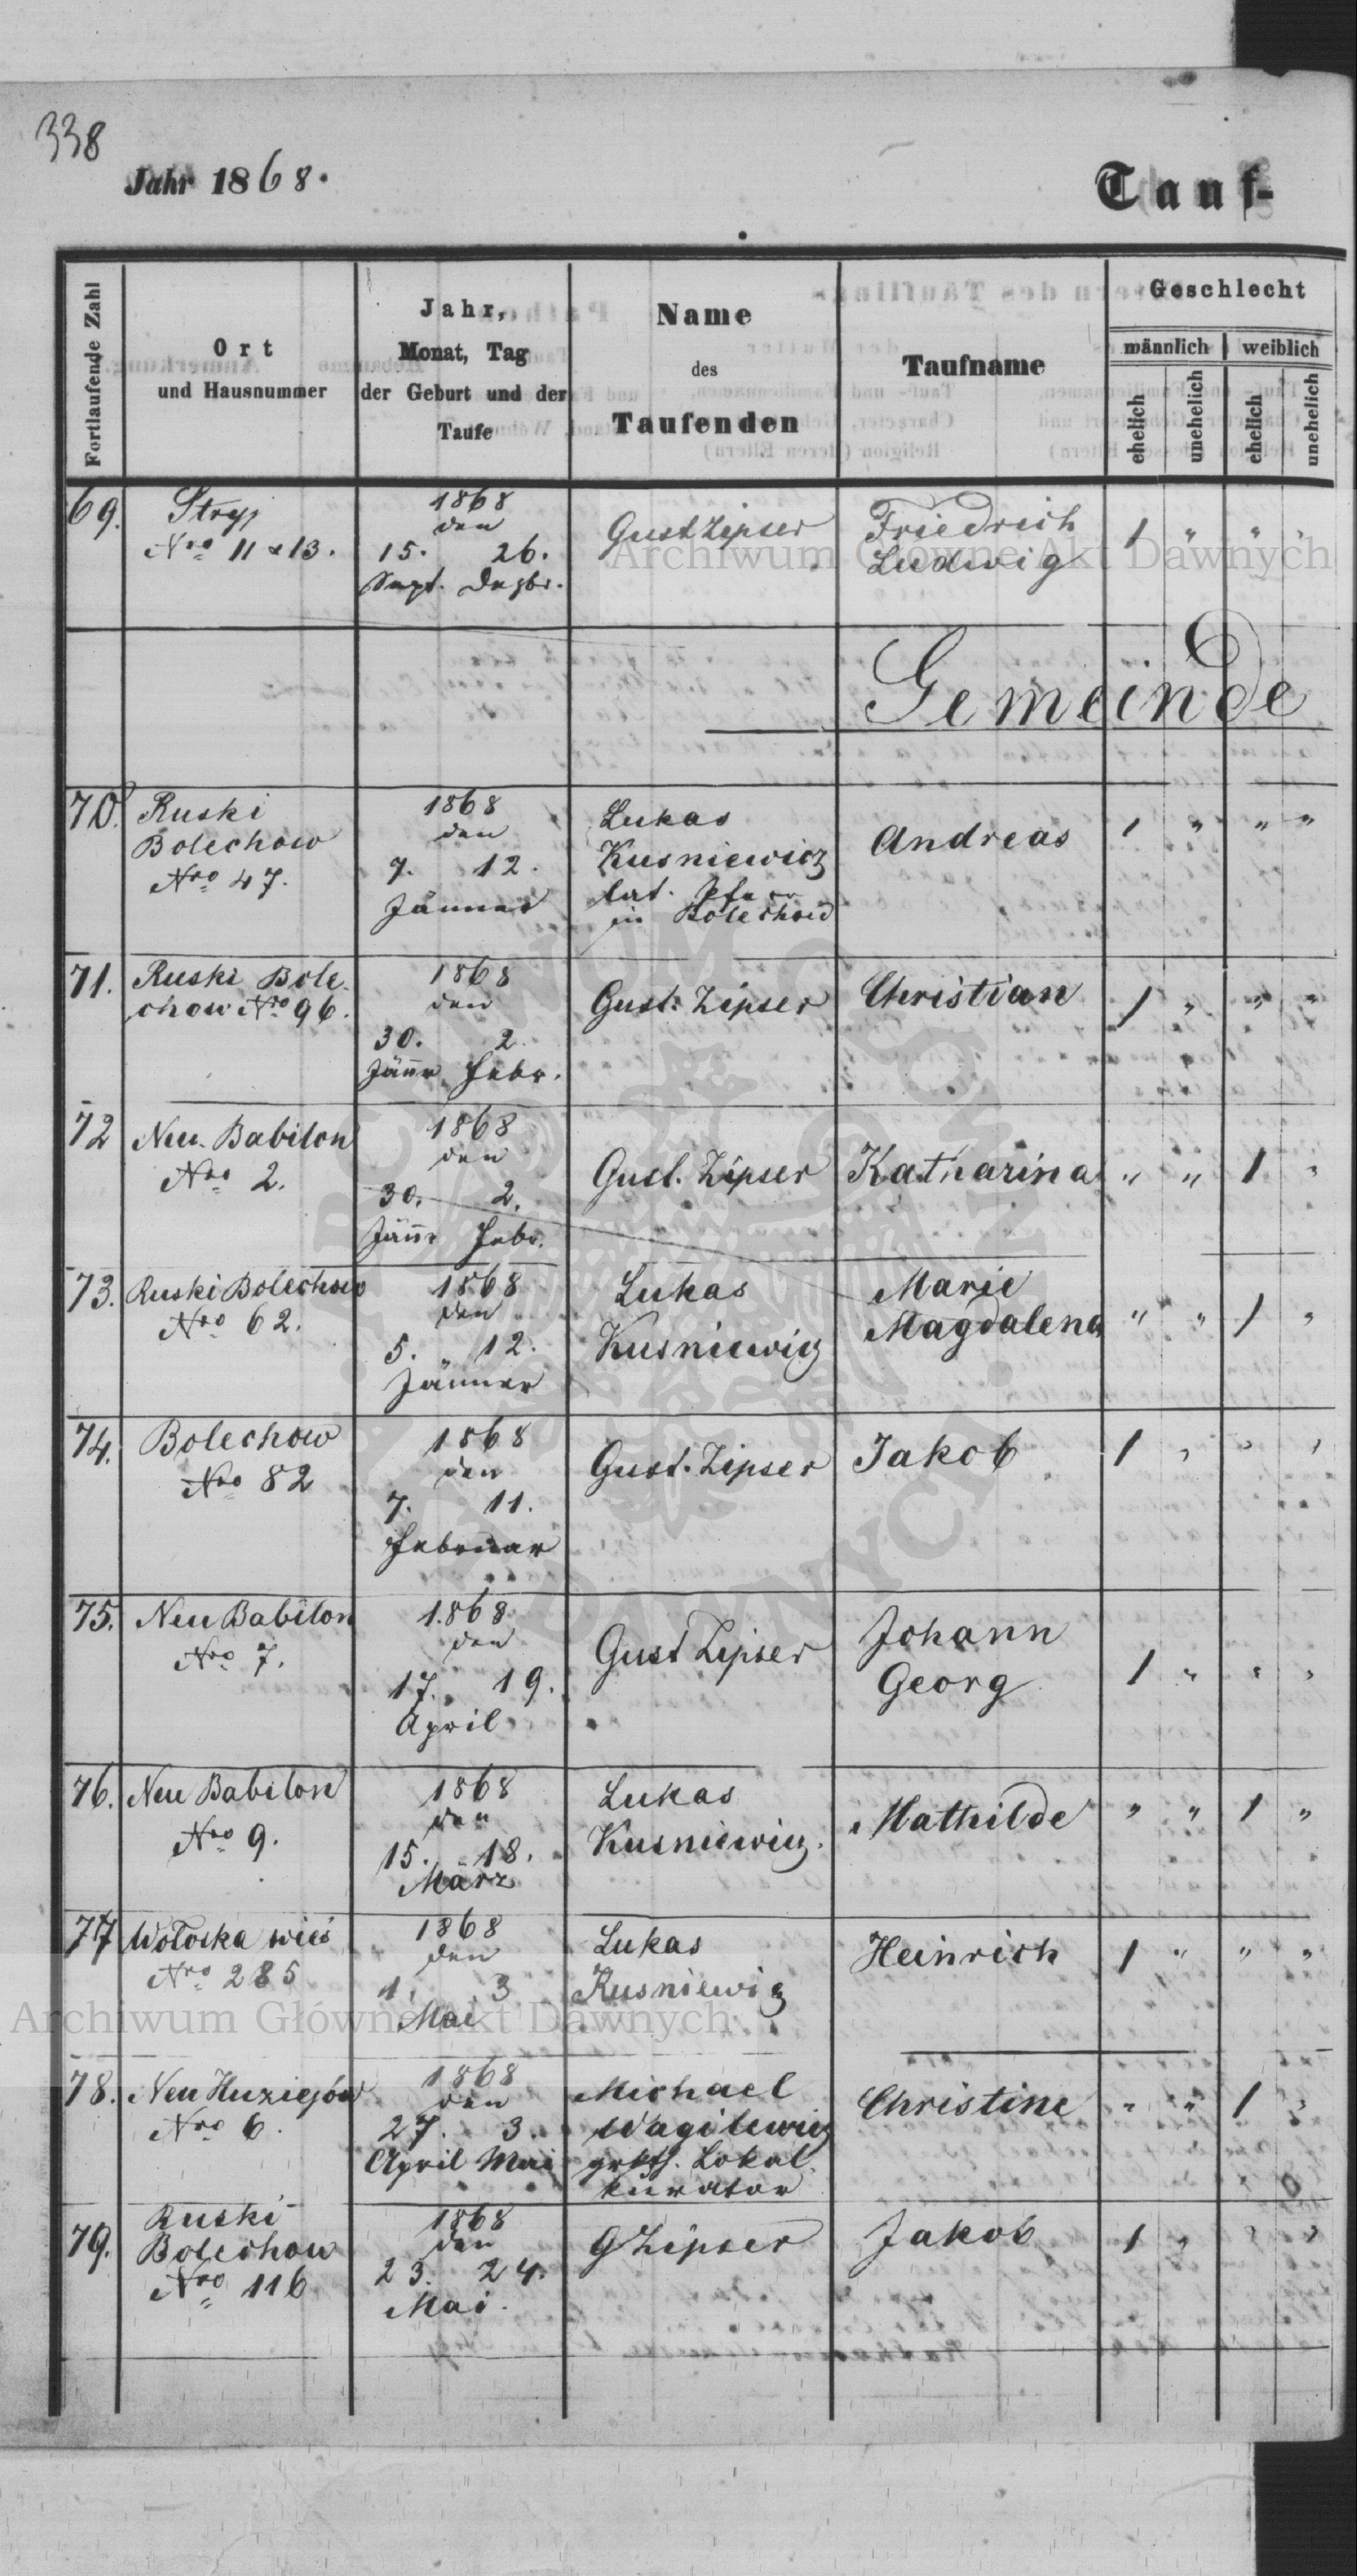 338
Jahr 1868.
Tauf-
Fortlaufende Zahl
Ort
und Hausnummer
Jahr,
Monat, Tag
der Geburt und der
Taufe
Name
des
Taufenden
Taufname
Geschlecht
männlich
weiblich
ehelich
unehelich
ehelich
unehelich
69.
Stryj
Nro 11 & 13.
1868
den
15. 26.
Sept. Dezbr.
Gust Zipser
Friedrich
Ludwig
1 " " "
Gemeinde
70.
Ruski
Bolechow
Nro 47.
1868
den
7. 12.
Jänner
Lukas
Kusniewicz
lat. Pfarr
in Bolechow
Andreas
1 " " "
71.
Ruski Bole-
chow Nro 96.
1868
den
30. 2.
Jänr Febr.
Gust. Zipser
Christian
1 " " "
72
Neu Babilon
Nro 2.
1868
den
30. 2.
Jänr Febr.
Gust. Zipser
Katharina
" " 1 "
73.
Ruski Bolechow
Nro 62.
1868
den
5. 12.
Jänner
Lukas
Kusniewicz
Marie
Magdalena
" " 1 "
74.
Bolechow
Nro 82
1868
den
7. 11.
Februar
Gust. Zipser
Jakob
1 " " "
75.
Neu Babilon
Nro 7.
1868
den
17. 19.
April
Gust Zipser
Johann
Georg
1 " " "
76.
Neu Babilon
Nro 9.
1868
den
15. 18.
März
Lukas
Kusniewicz.
Mathilde
" " 1 "
77
Wołoska wieś
Nro 285
1868
den
1. 3
Mai
Lukas
Kusniewicz
Heinrich
1 " " "
78.
Neu Huziejów
Nro 6.
1868
den
27. 3.
April Mai
Michael
Wagilewicz
grkth. Lokal
kurator
Christine
" " 1 "
79.
Ruski
Bolechow
Nro 116
1868
den
23. 24.
Mai.
G Zipser
Jakob
1 " " "
Archiwum Główne Akt Dawnych
Archiwum Główne Akt Dawnych